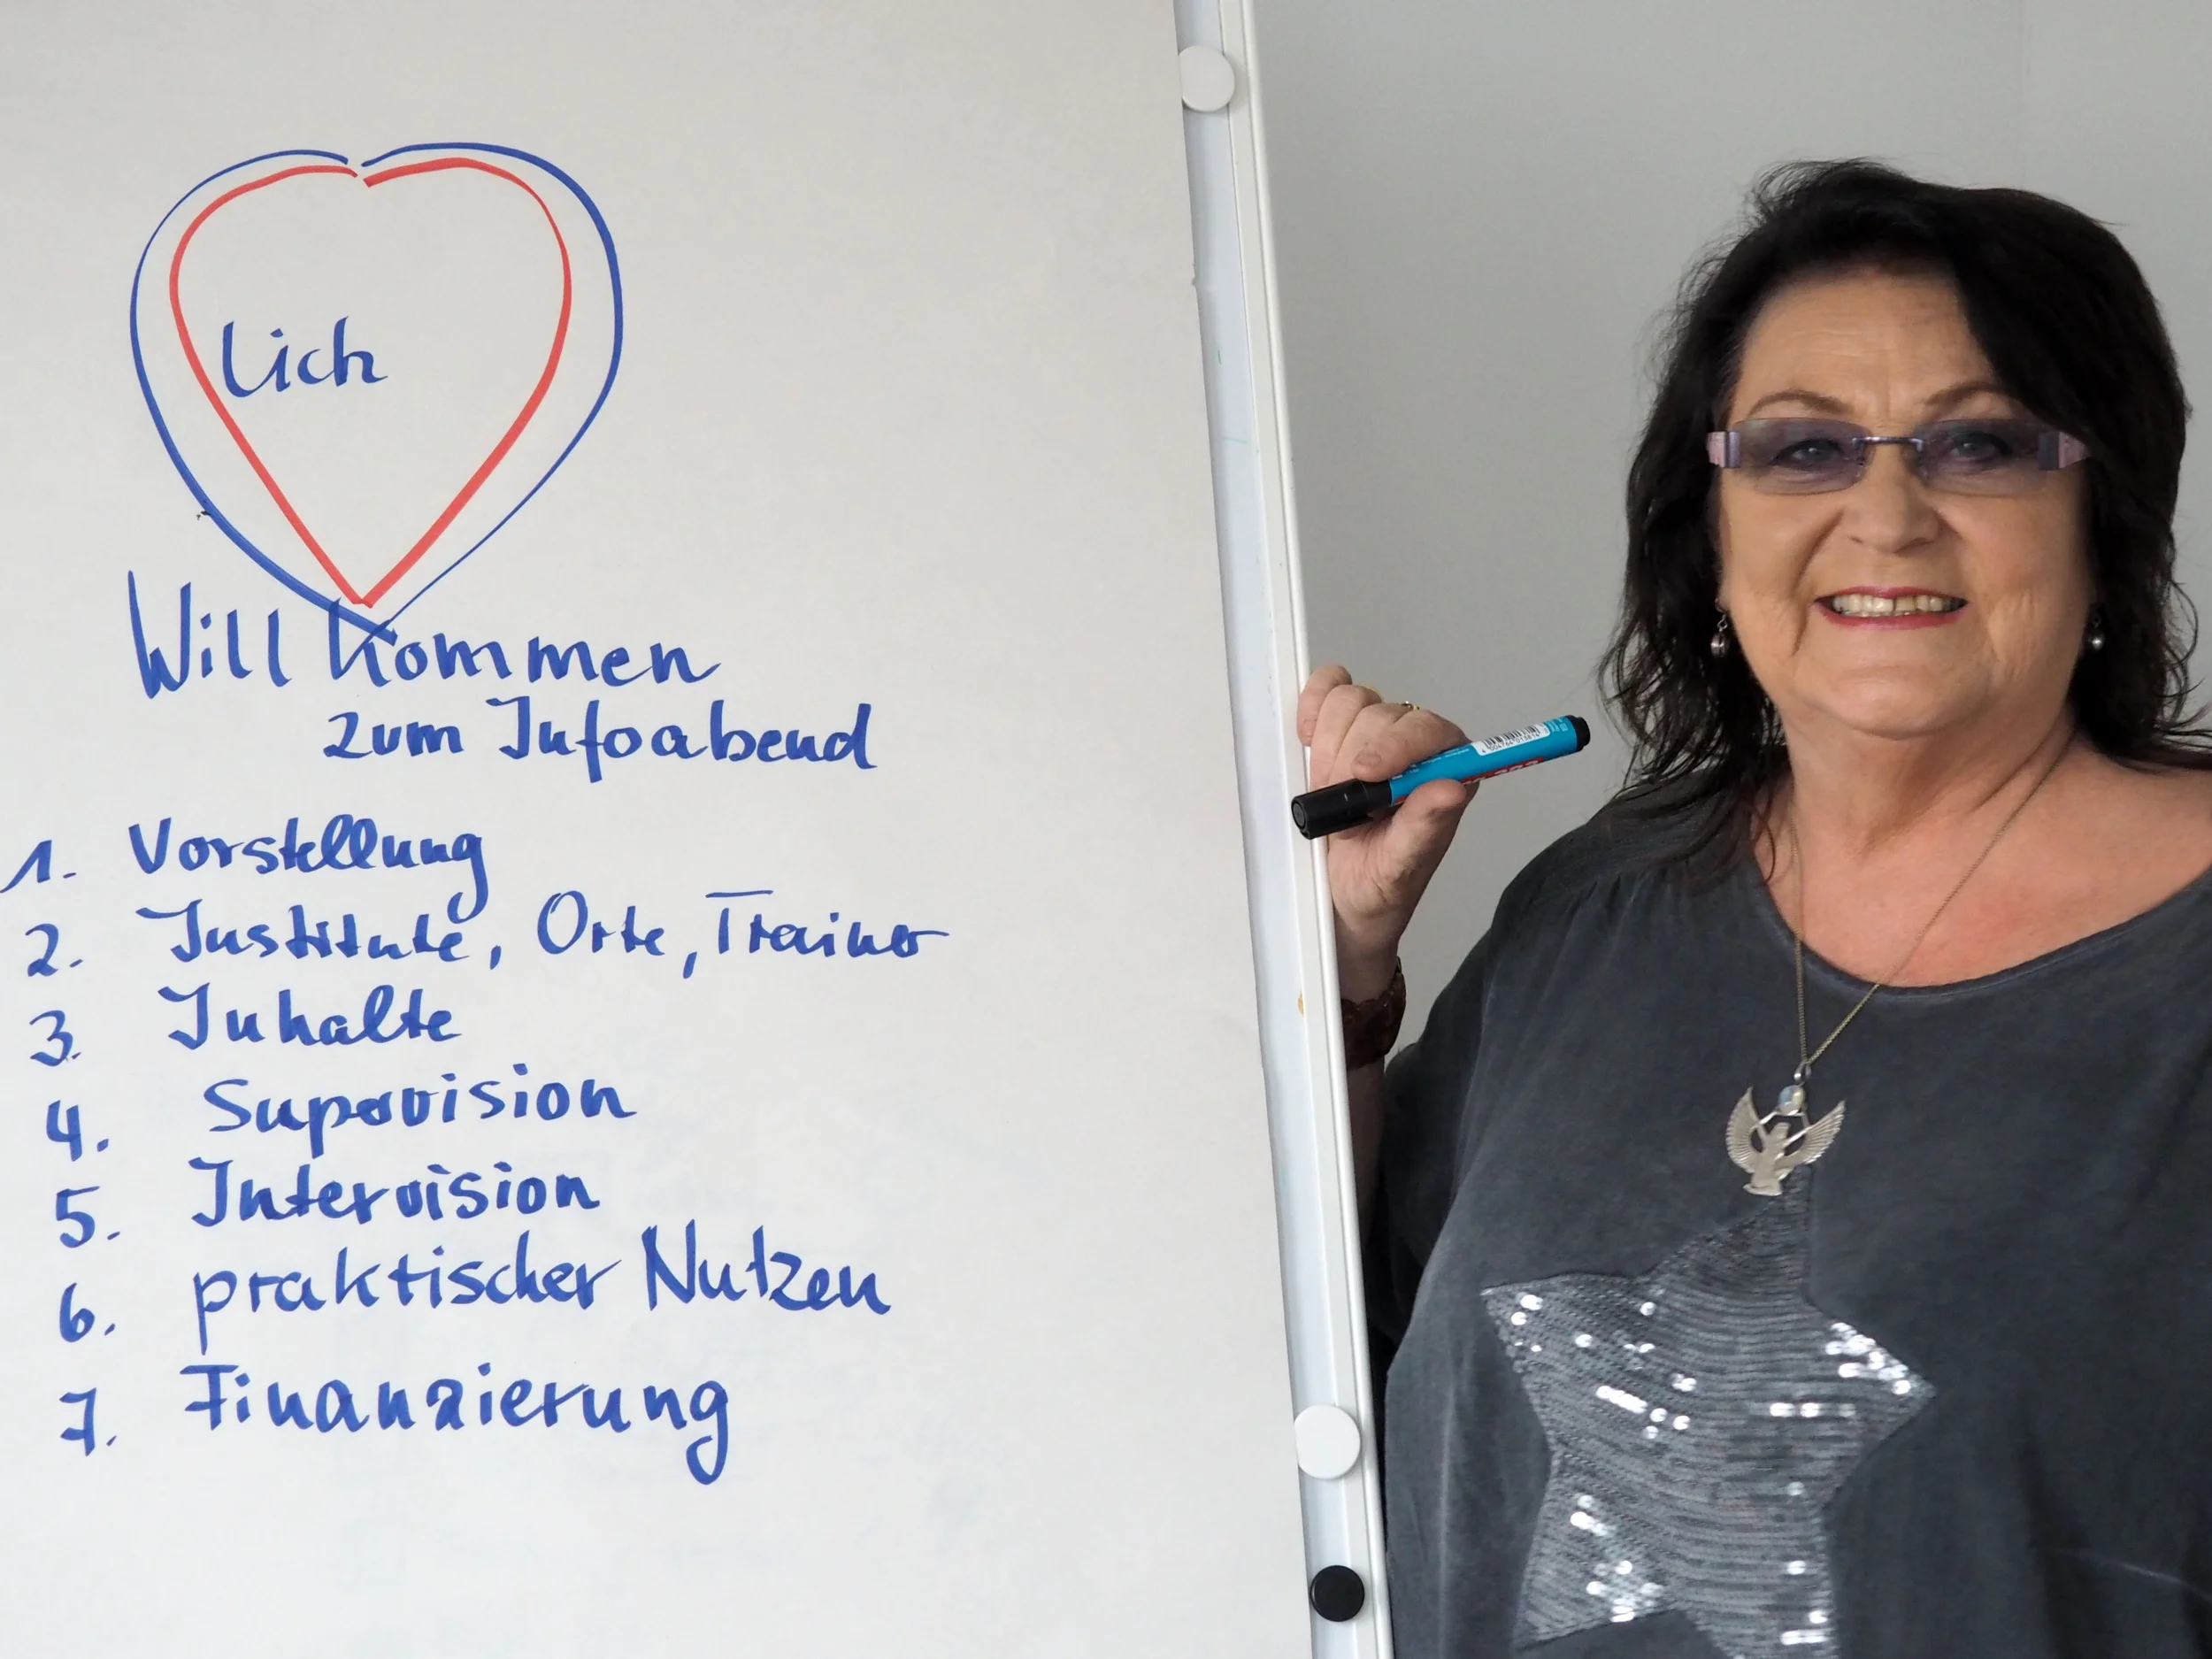 lich
Will kommen
zum Infoabend
1. Vorstellung
2. Institute, Orte, Trainer
3. Inhalte
4. Supervision
5. Intervision
6. praktischer Nutzen
7. Finanzierung